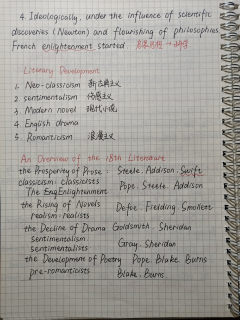 4. Ideologically, under the influence of scientific
discoveries (Newton) and flourishing of philosophies
French enlightenment started
Literary Development
1. Neo-classicism 新古典主义
2. sentimentalism 伤感主义
3. Modern novel 现代小说
4. English drama
5. Romanticism 浪漫主义
An Overview of the 18th Literature
the Prosperity of Prose: Steele. Addison. Swift
classicism-classicists
Pope. Steele. Addison
The Eng Enlightenment
the Rising of Novels Defoe. Fielding. Smollett
realism-realists
the Decline of Drama Goldsmith. Sheridan
sentimentalism
Gray. Sheridan
sentimentalists
the Development of Poetry Pope. Blake. Burns
pre-romanticists Blake. Burns